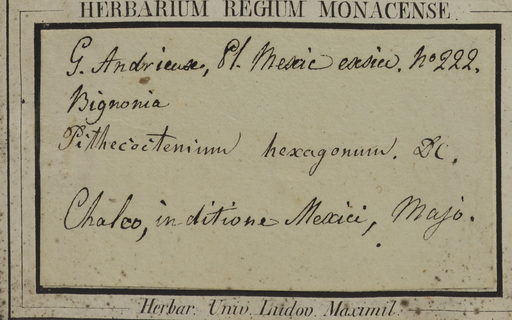 HERBARIUM REGIUM MONACENSE.
G. Andrieux, Pl. Mexic exsicc. No 222.
Bignonia
Pithecoctenium hexagonum. DC.
Chalco, in ditione Mexici, Majo.
Herbar. Univ. Ludov. Maximil.